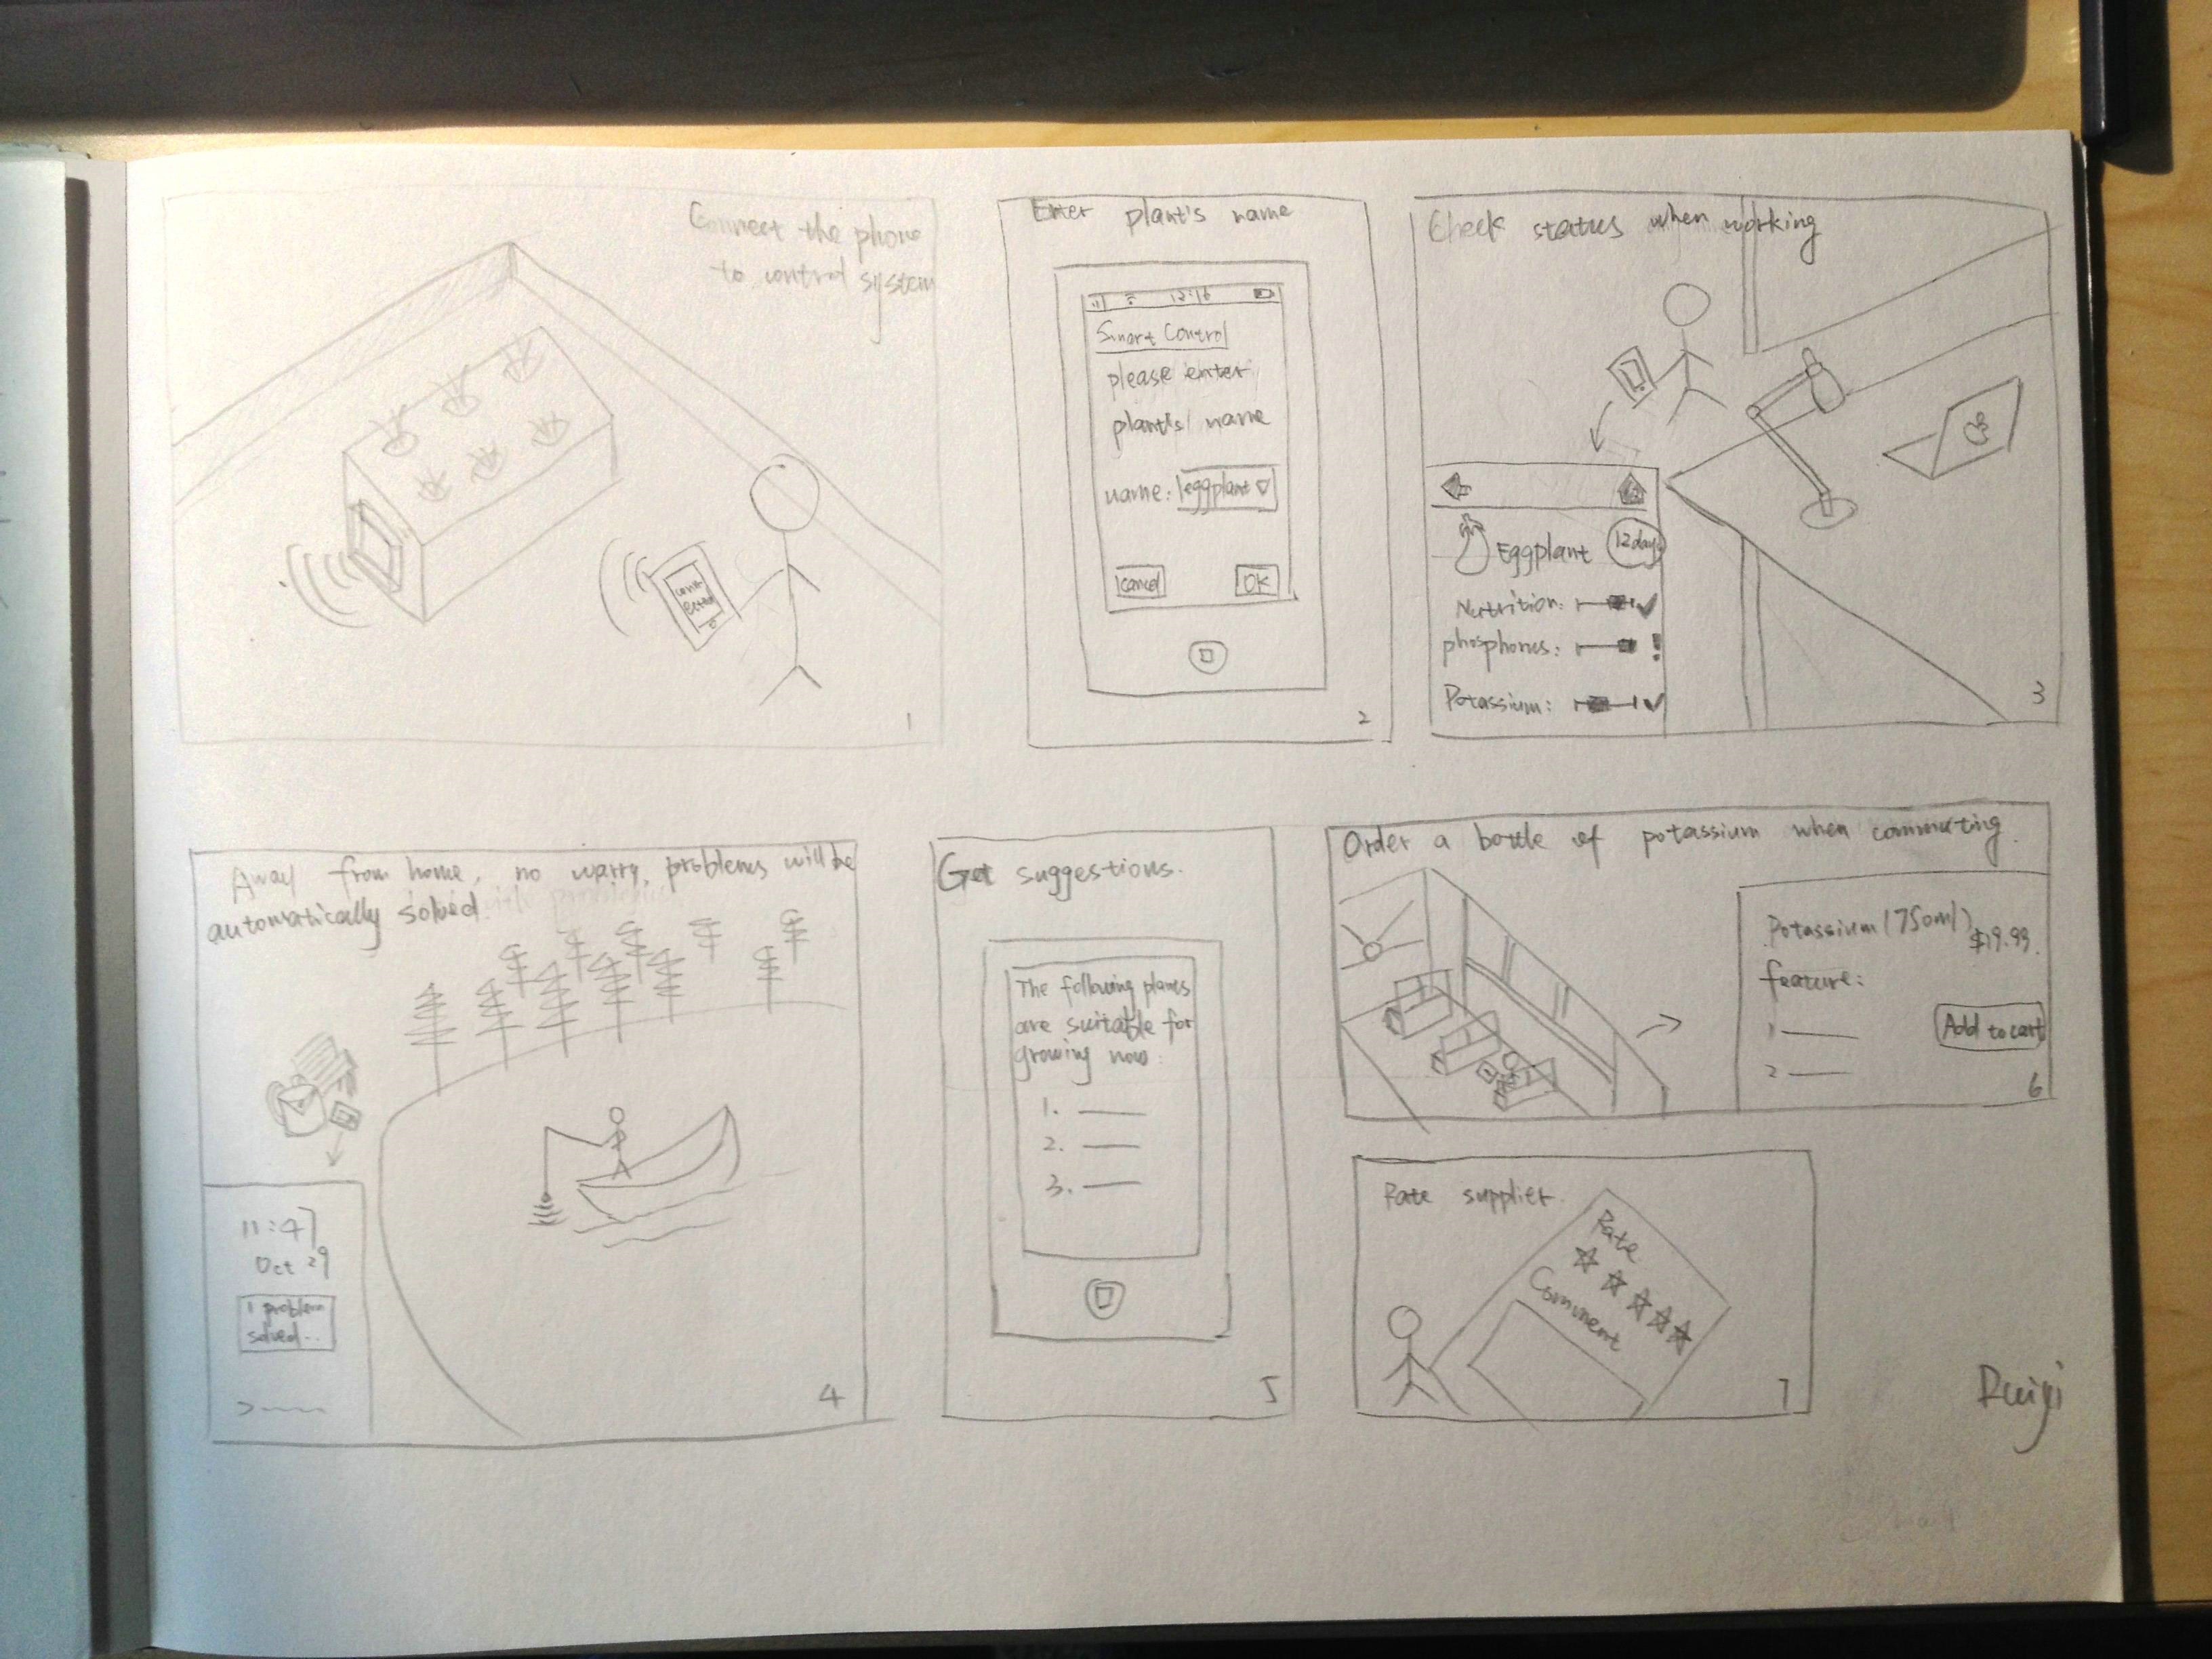 Connect the phone
to control system
1
Enter plant's name
12:16
Smart Control
please enter
plant's name
name: eggplant
cancel
OK
2
Check status when working
Eggplant
12days
Nutrition:
phosphorus: !
Potassium:
3
Away from home, no warry, problems will be
automatically solved.
11:47
Oct 29
1 problem
solved...
4
Get suggestions.
The following plants
are suitable for
growing now:
1.
2.
3.
5
Order a bottle of potassium when commuting.
Potassium (750ml)
$19.99
feature:
1
Add to cart
2
6
Rate supplier.
Rate
Comment
7